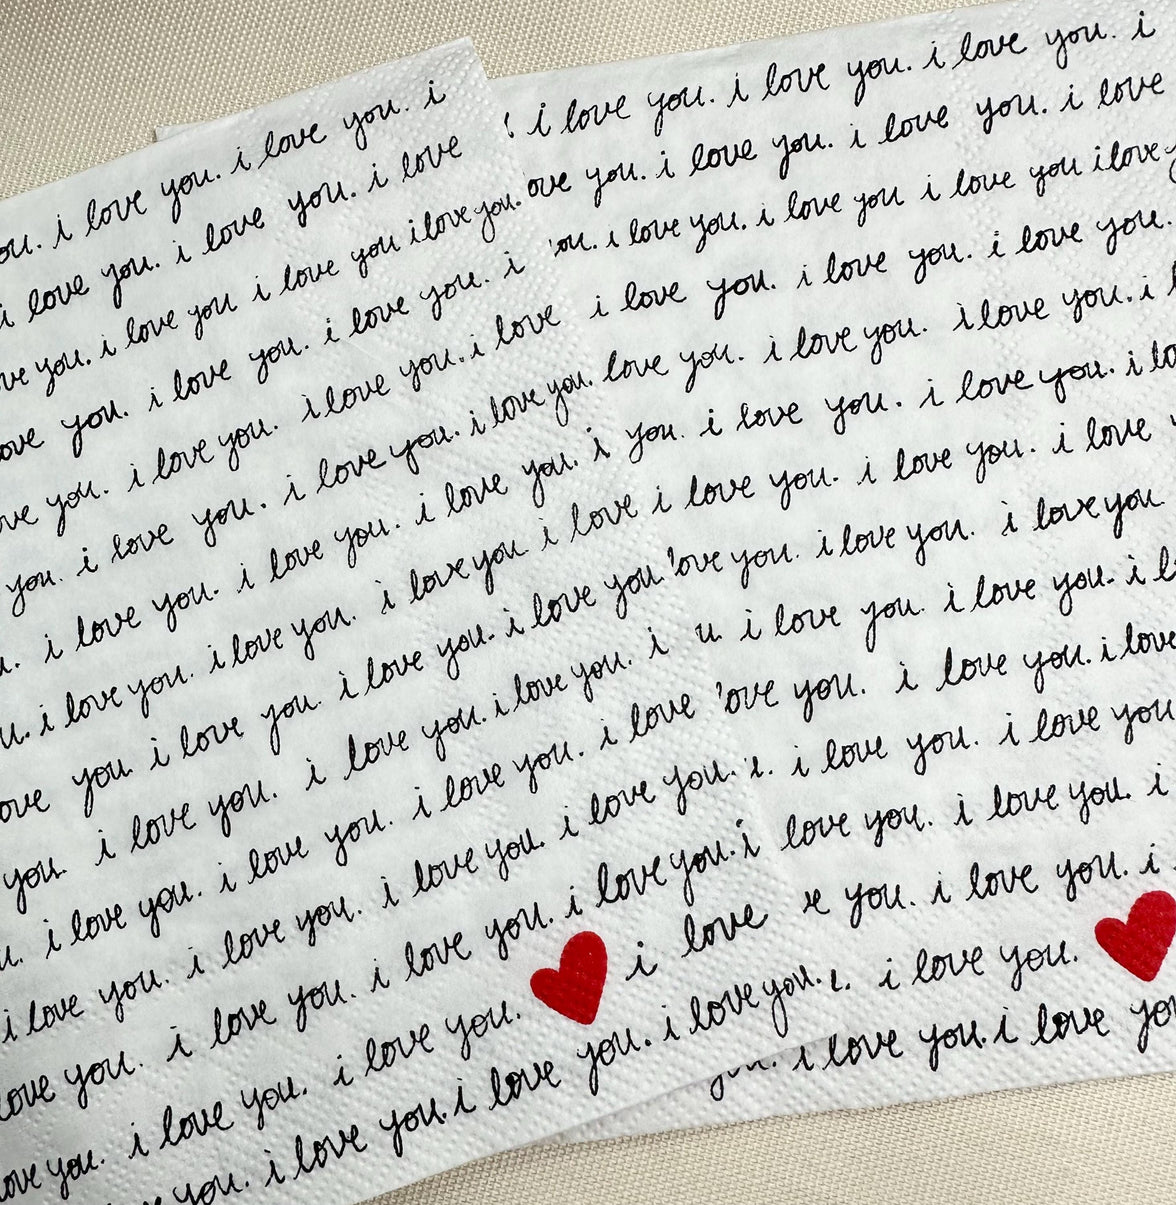 ou. i love you. i love you. i
i love you. i love you. i love
ve you. i love you i love you i love you.
ove you. i love you. i love you. i
ve you. i love you. i love you. i love
you. i love you. i love you. i love you.
u. i love you. i love you. i love you. i
u. i love you. i love you. i love you i love
ove you i love you. i love you. i love you.
you. i love you. i love you. i love you. i
u. i love you. i love you. i love you. i love
i love you. i love you. i love you. i love you.
love you. i love you. i love you. i love you. i
ove you. i love you. i love you. i love
ve you. i love you. i love you. i love you.
i love you. i love you. i love you. i
ove you. i love you. i love you. i love
ou. i love you. i love you i love you i love
i love you. i love you. i love you.
love you. i love you. i love you. i
you. i love you. i love you. i lo
i love you. i love you. i love
ove you. i love you. i love you
u. i love you. i love you. i l
ove you. i love you. i love
i love you. i love you
love you. i love you. i
e you. i love you. i
i love you.
you. i love you. i love yo